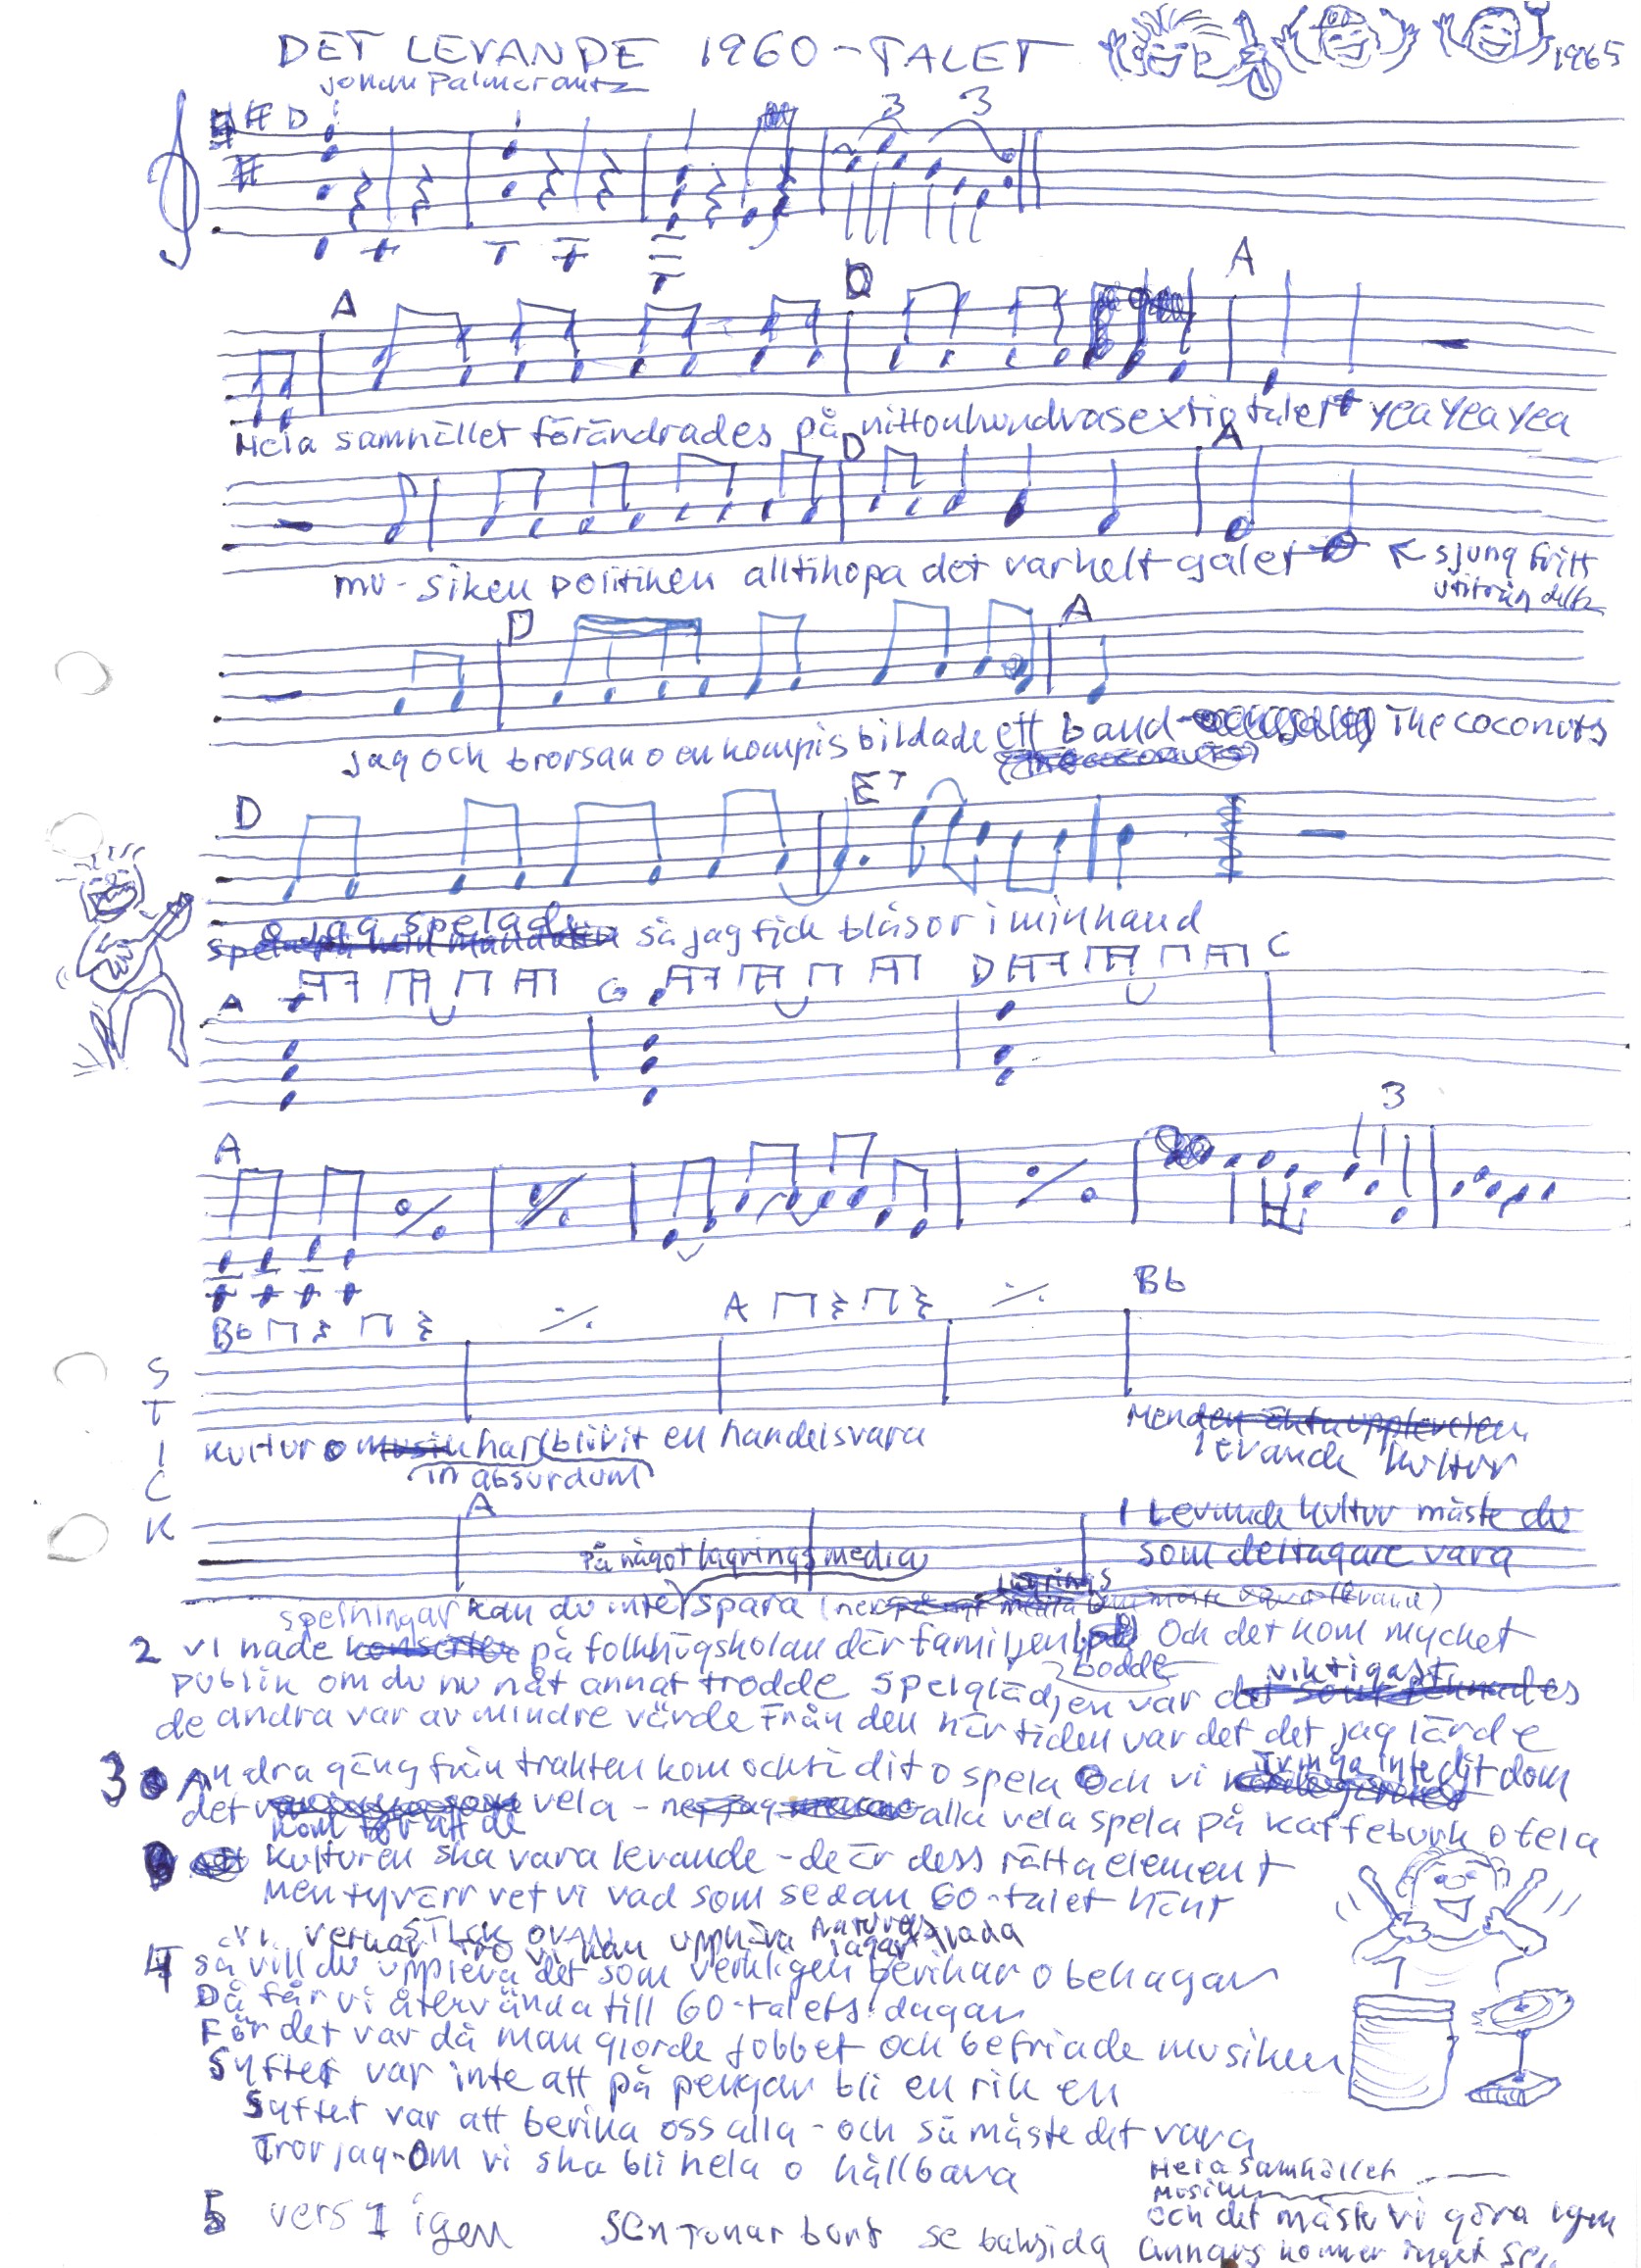 DET LEVANDE 1960-TALET
1965
3 3
D
A D A
Hela samhället förändrades på nittonhundrasextiotalet yea yea yea
D A
mu-siken politiken alltihopa det var helt galet ← sjung fritt
utifrån detta
D A
jag och brorsan o en kompis bildade ett band The coconuts
D E7
& jag spelade så jag fick blåsor i min hand
A G D C
A 3
Bb A Bb
STICK
Kultur o har blivit en handelsvara
(in absurdum)
Men
levande kultur
A
I Levande kultur måste du
på något lagringsmedia som deltagare vara
spelningar kan du inte spara
2 vi hade på folkhögskolan där familjen bodde Och det kom mycket
publik om du nu nåt annat trodde spelglädjen var viktigast
de andra var av mindre värde Från den här tiden var det det jag lärde
3 Andra gäng från trakten kom också dit o spela Och vi tvinga inte dit dom
det vela - alla vela spela på kaffeburk o fela
kom för att de
Kulturen ska vara levande - de är dess rätta element
Men tyvärr vet vi vad som sedan 60-talet hänt
STICK OVAN
vi verkar tro vi kan upphäva naturens lagar
4 så vill du uppleva det som verkligen berikar o behagar
Då får vi återvända till 60-talets dagar
För det var då man gjorde jobbet och befriade musiken
Syftet var inte att på pengar bli en rik en
Syftet var att berika oss alla - och så måste det vara
Tror jag - Om vi ska bli hela o hållbara
Hela samhället
Musiken
5 vers 1 igen
och det måste vi göra igen
Sen tonar bort se baksida
annars kommer inget